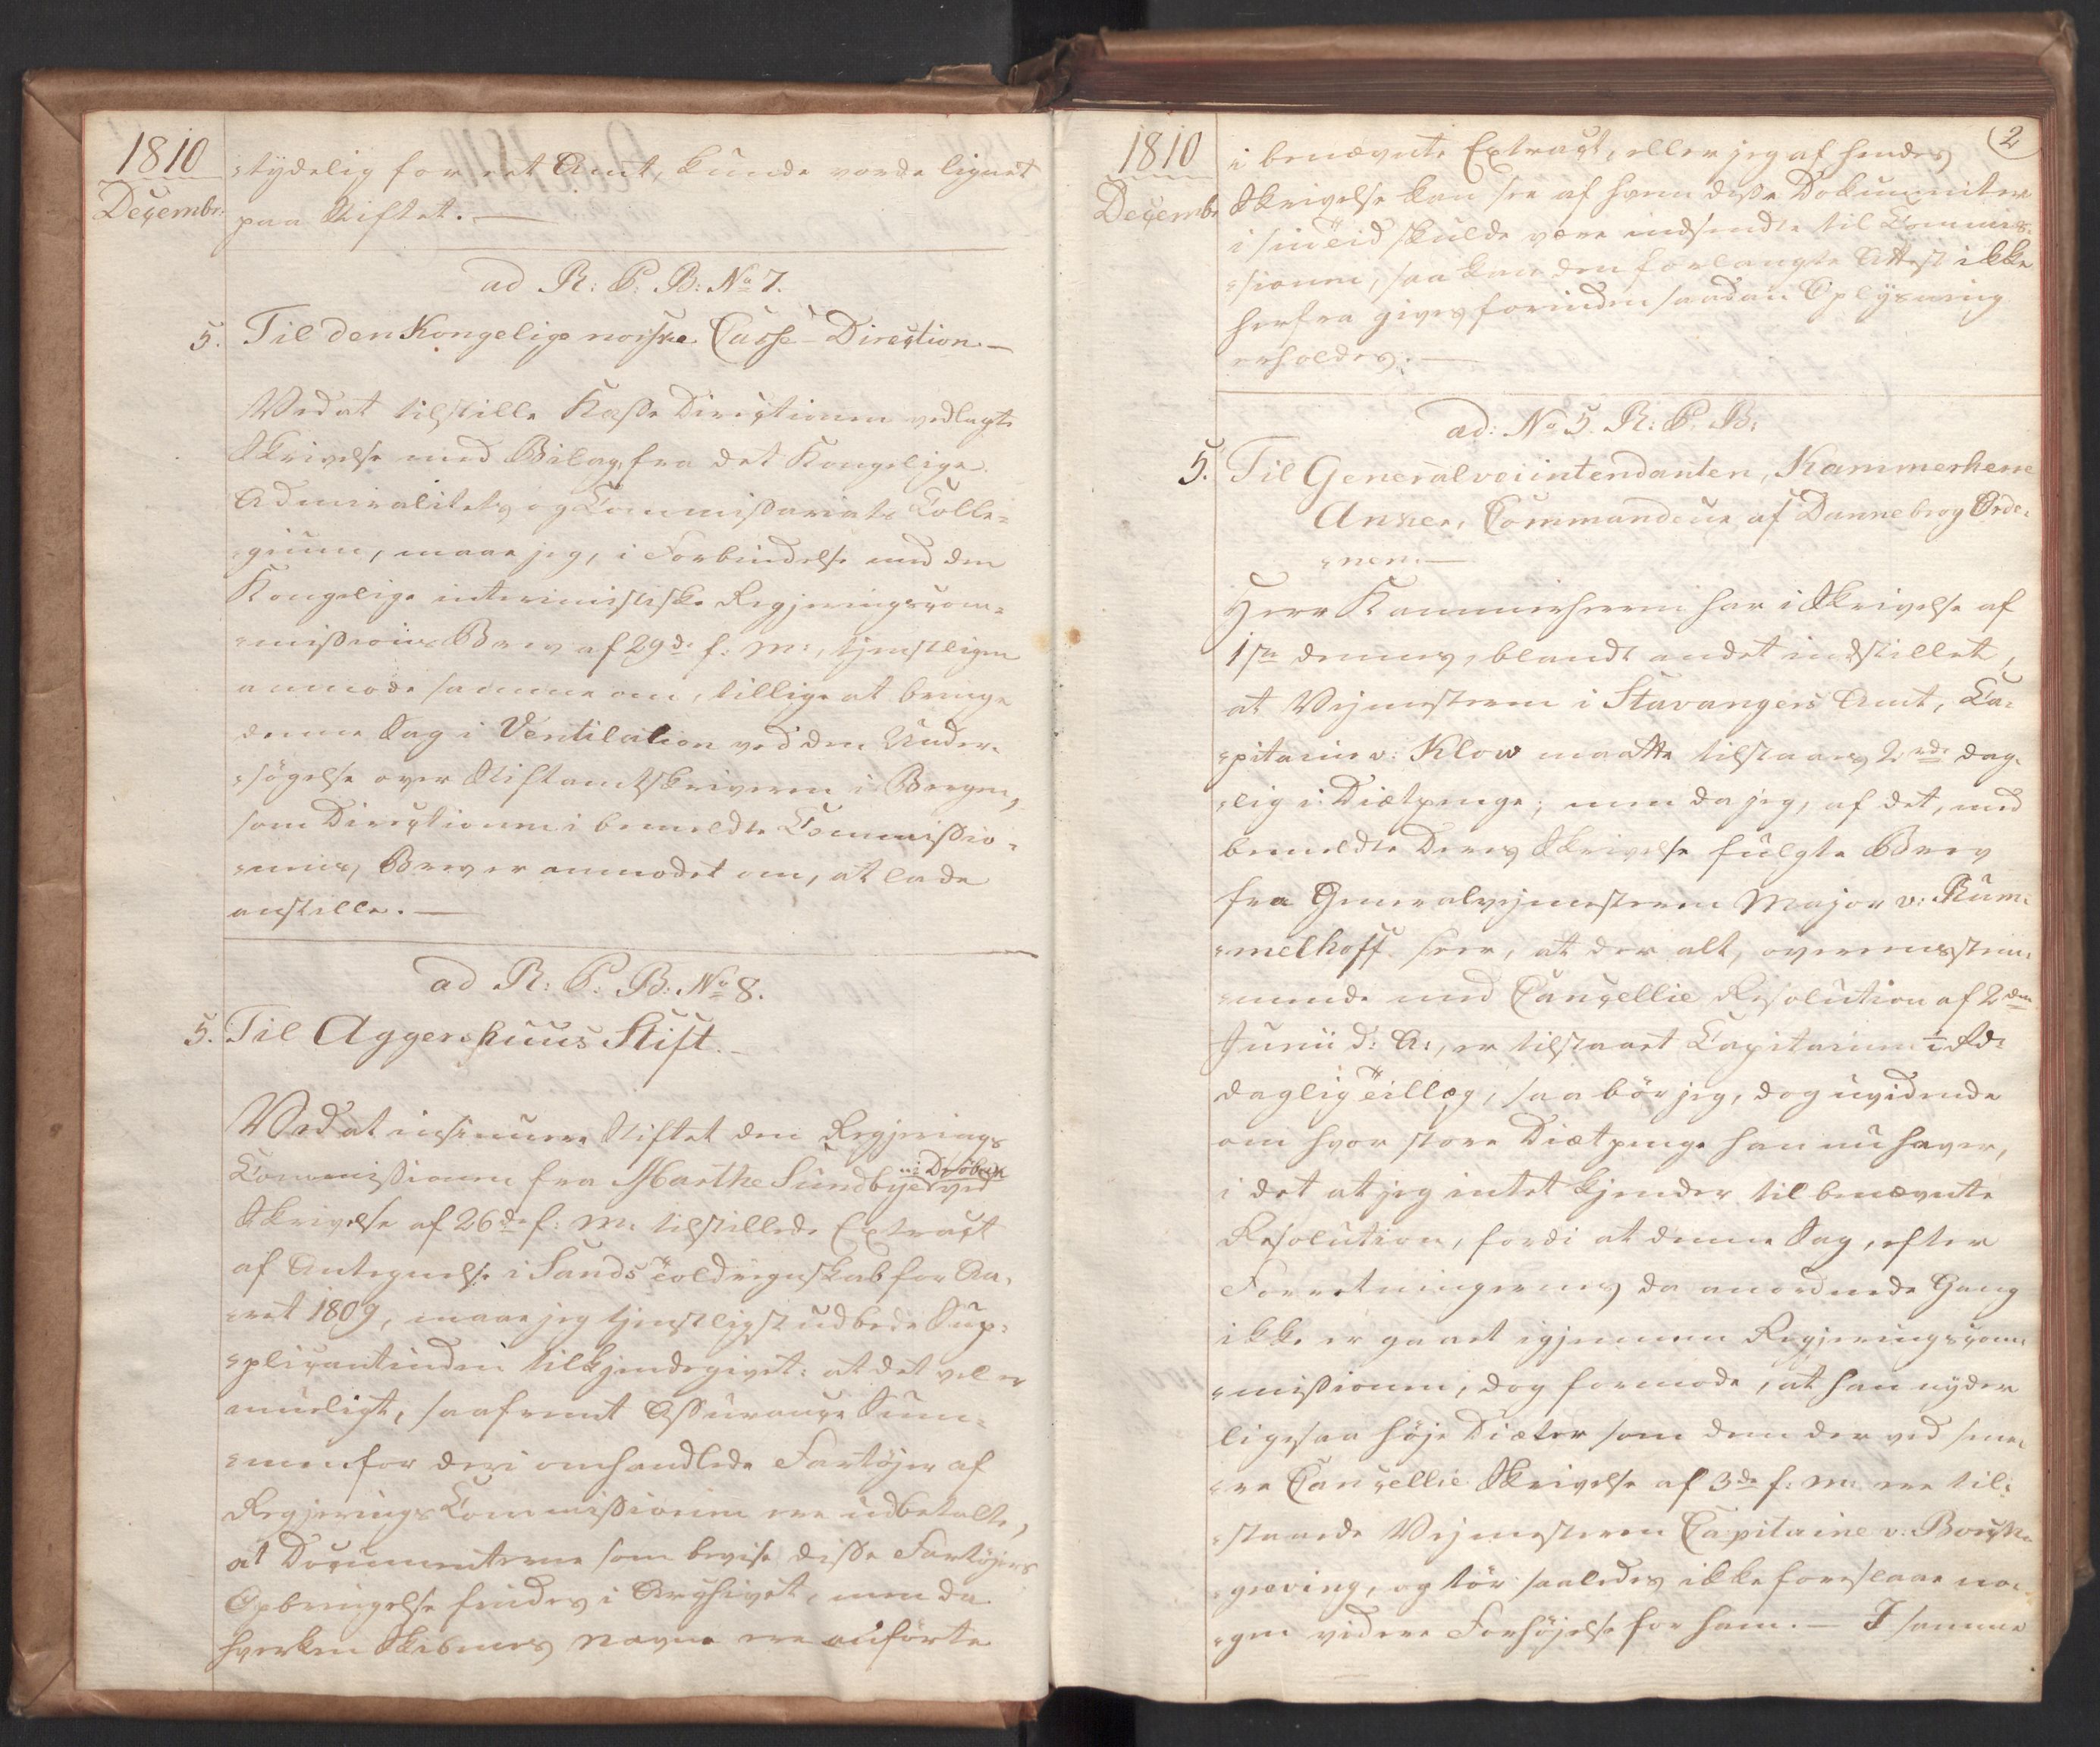 1810
Decembr:
-tydelig for eet Amt, kunde vorde lignet
paa Stiftet. —
ad R: C: B: No 7.
5. Til den Kongelige norske Casse-Direction. —
Ved at tilstille Kasse Directionen vedlagte
Skrivelse med Bilag, fra det Kongelige
Admiralitets og Commissariats Colle-
-gium, maae jeg, i Forbindelse med den
Kongelige interimistiske Regjeringscom-
-missions Brev af 29de f: M:, tjenstligen
anmode samme om, tillige at bringe
denne Sag i Ventilation ved den Under-
-søgelse over Stiftamtskriveren i Bergen,
som Directionen i bemeldte Commissio-
-nens Brev er anmodet om, at lade
anstille. —
ad R: C: B: No 8.
5. Til Aggershuus Stift. —
Ved at insinuere Stiftet den Regjerings
Commissionen fra Marthe Sundbye i Drøbak ved
Skrivelse af 26de f: M: tilstillede Extract
af Antegnelse i Sands Toldregnskab for Aa-
-ret 1809, maae jeg tjenstligst udbede Sup-
-plicantinden tilkjendegivet: at det vel er
mueligt, saafremt Assurance Sum-
-men for deri omhandlede Fartøjer af
Regjerings Commissionen ere udbetalte,
at Documenterne som bevise disse Fartøjers
Opbringelse findes i Archivet, men da
hverken Skibenes Navne ere anførte
2
1810
Decembr
i benævnte Extract, eller jeg af hendes
Skrivelse kan see af hvem disse Dokumenter
i sin Tid skulde være indsendte til Commis-
-sionen, saa kan den forlangte Attest ikke
herfra gives forinden saadan Oplysning
erholdes. —
ad: No 5. R: C: B:
5. Til Generalveiintendanten, Kammerherre
Anker, Commandeur af Dannebrog Orde-
-nen. —
Herr Kammerherren har i Skrivelse af
1ste dennes, blandt andet indstillet,
at Vejmesteren i Stavangers Amt, Ca-
-pitaine v: Klow maatte tilstaaes 2 rdr dag-
-lig i Diætpenge; men da jeg, af det, med
bemeldte Deres Skrivelse fulgte Brev
fra Generalvejmesteren Major v: Rum-
-melhoff seer, at der alt, overensstem-
-mende med Cancellie Resolution af 2den
Junii d: A:, er tilstaaet Capitainen ½ Rd:
daglig Tillæg, saa bør jeg, dog uvidende
om hvor store Diætpenge han nu haver,
i det at jeg intet kjender til benævnte
Resolution, fordi at denne Sag, efter
Forretningernes da anordnede Gang
ikke er gaaet igjennem Regjeringscom-
-missionen, dog formode, at han nyder
ligesaa høje Diæter som dem der ved sene-
-re Cancellie Skrivelse af 3de f: M: ere til-
-staaede Vejmesteren Capitaine v:
-greving, og tør saaledes ikke foreslaae no-
-gen videre Forhøjelse for ham. — I samme